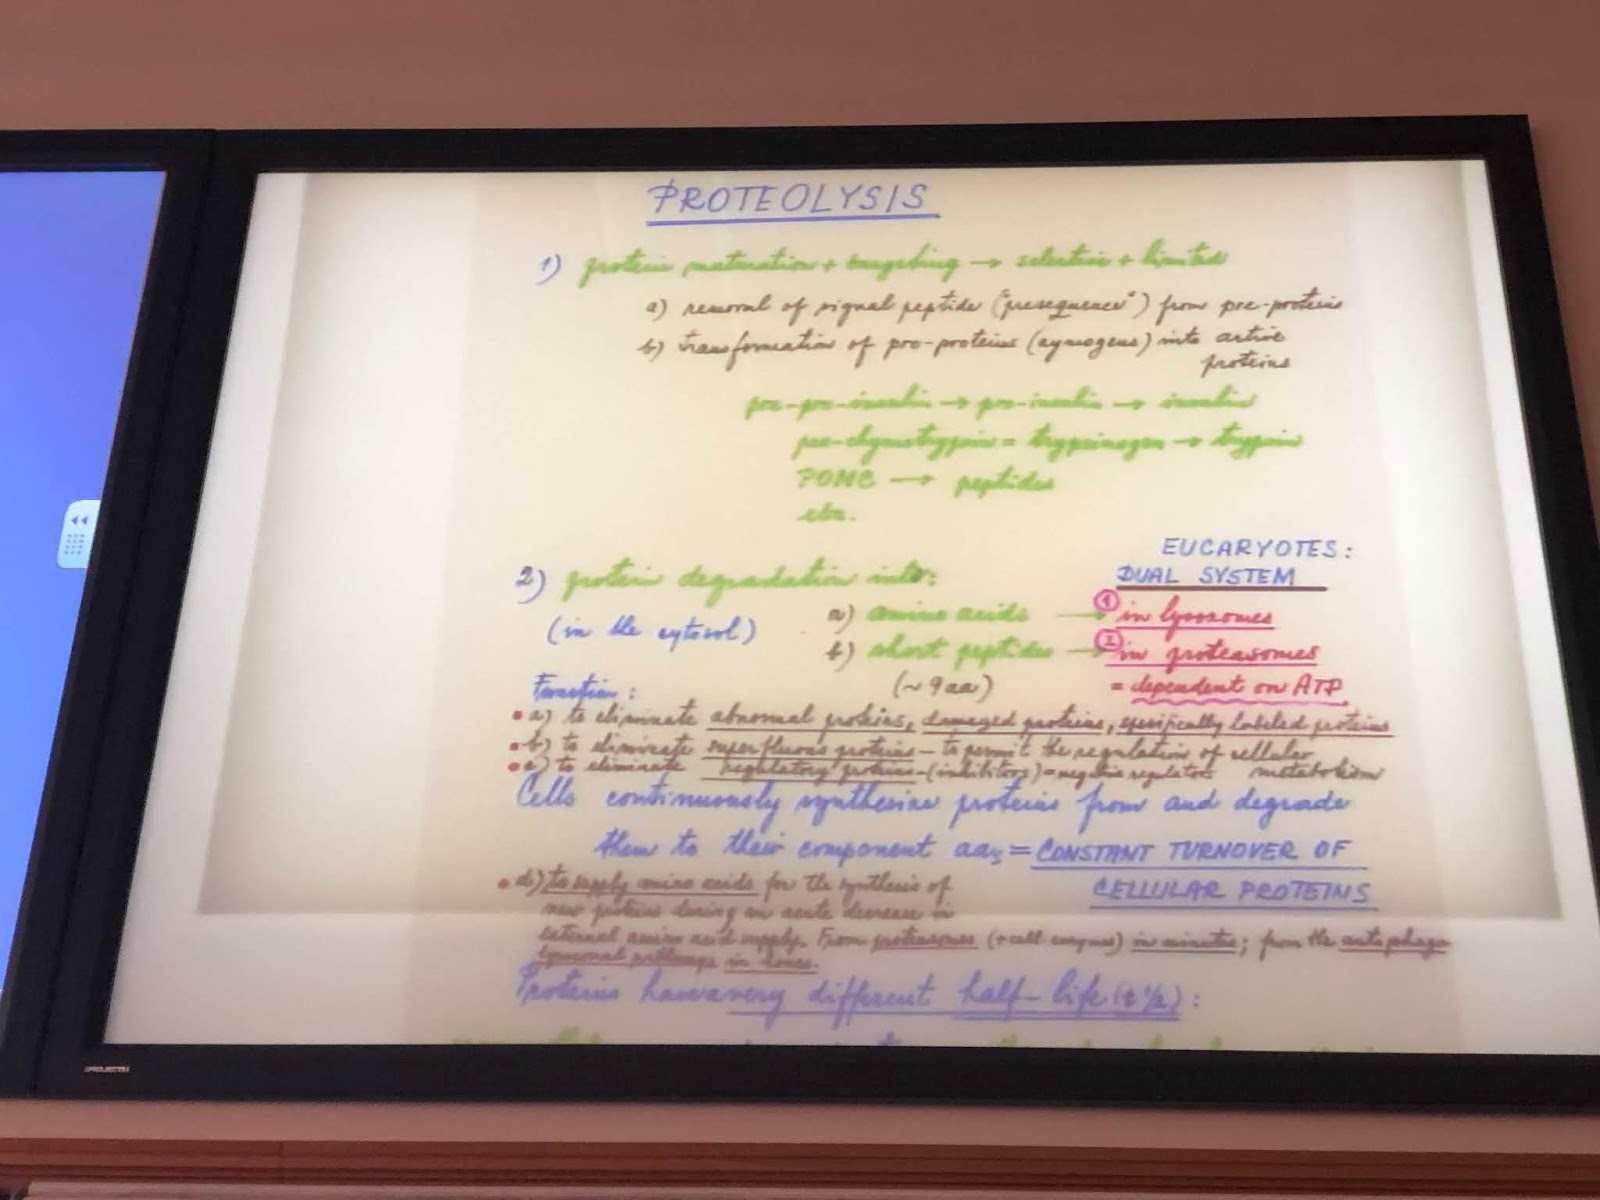 PROTEOLYSIS
1) protein maturation + targeting → selective + limited
a) removal of signal peptide ("presequence") from pre-proteins
b) transformation of pro-proteins (zymogens) into active
proteins
pre-pro-insulin → pro-insulin → insulin
trypsinogen → trypsin
POMC → peptides
etc.
EUCARYOTES:
DUAL SYSTEM
2) protein degradation into:
(in the cytosol)
a) amino acids → 1 in lysosomes
b) short peptides → 2 in proteasomes
(~ 9 aa)
= dependent on ATP
Function:
a) to eliminate abnormal proteins, damaged proteins, specifically labeled proteins
b) to eliminate superfluous proteins – to permit the regulation of cellular
metabolism
c) to eliminate regulatory proteins – (inhibitors) = negative regulators
Cells continuously synthesize proteins from and degrade
them to their component aas = CONSTANT TURNOVER OF
CELLULAR PROTEINS
d) to supply amino acids for the synthesis of
new proteins during an acute decrease in
external amino acid supply. From proteasomes (+ call enzymes) in minutes; from the autophago
lysosomal pathways in hours.
Proteins have very different half-life (t 1/2):